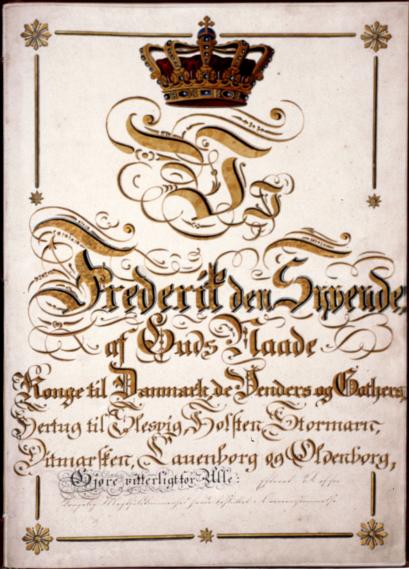 F
Frederik den Syvende
af Guds Naade
Konge til Danmark, de Venders og Gothers,
Hertug til Slesvig, Holsten, Stormarn,
Ditmarsken, Lauenborg og Oldenborg,
Gjøre vitterligt for Alle: